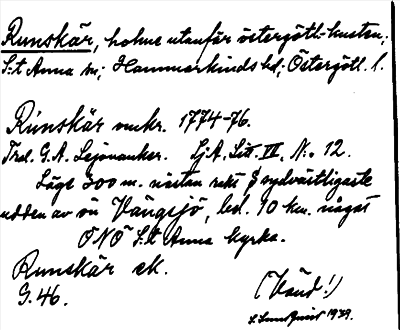 Runskär, holme utanför östergötl.-kusten;
S:t Anna sn; Hammarkinds hd; Östergötl. l.
Runskär omkr. 1774-76.
Trol. G.A. Lejonancker. Sj.A. Litt. II, N:o 12.
Läge 300 m. nästan rakt S sydvästligaste
udden av ön Vängsjö, bel. 10 km. något
ONO S:t Anna kyrka.
Runskär ek.
G. 46. (Vänd!)
1939.